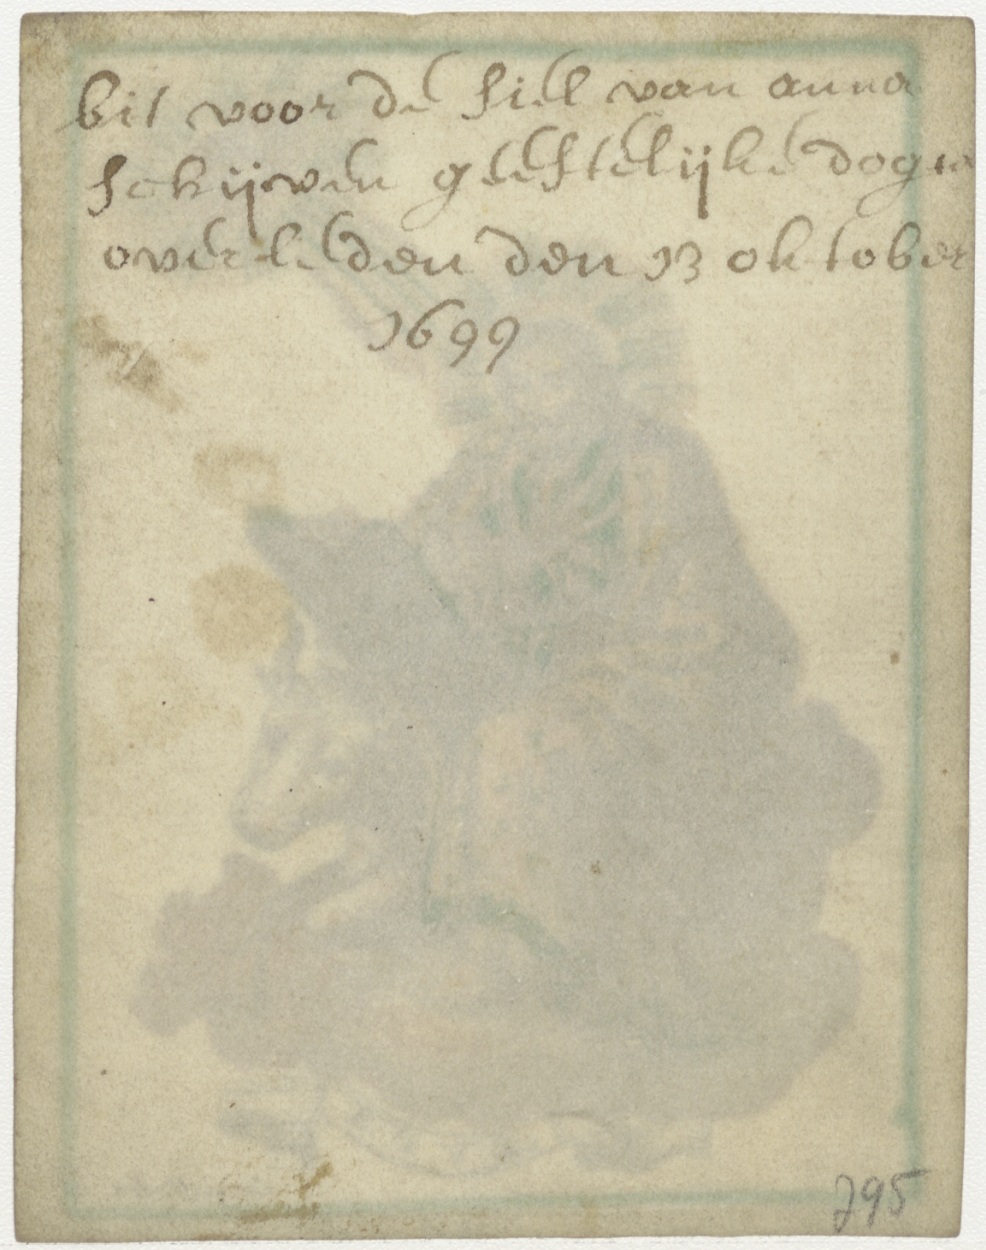 bit voor de siel van anna
schijven geestelijke
overleden den 13 oktober
1699
295